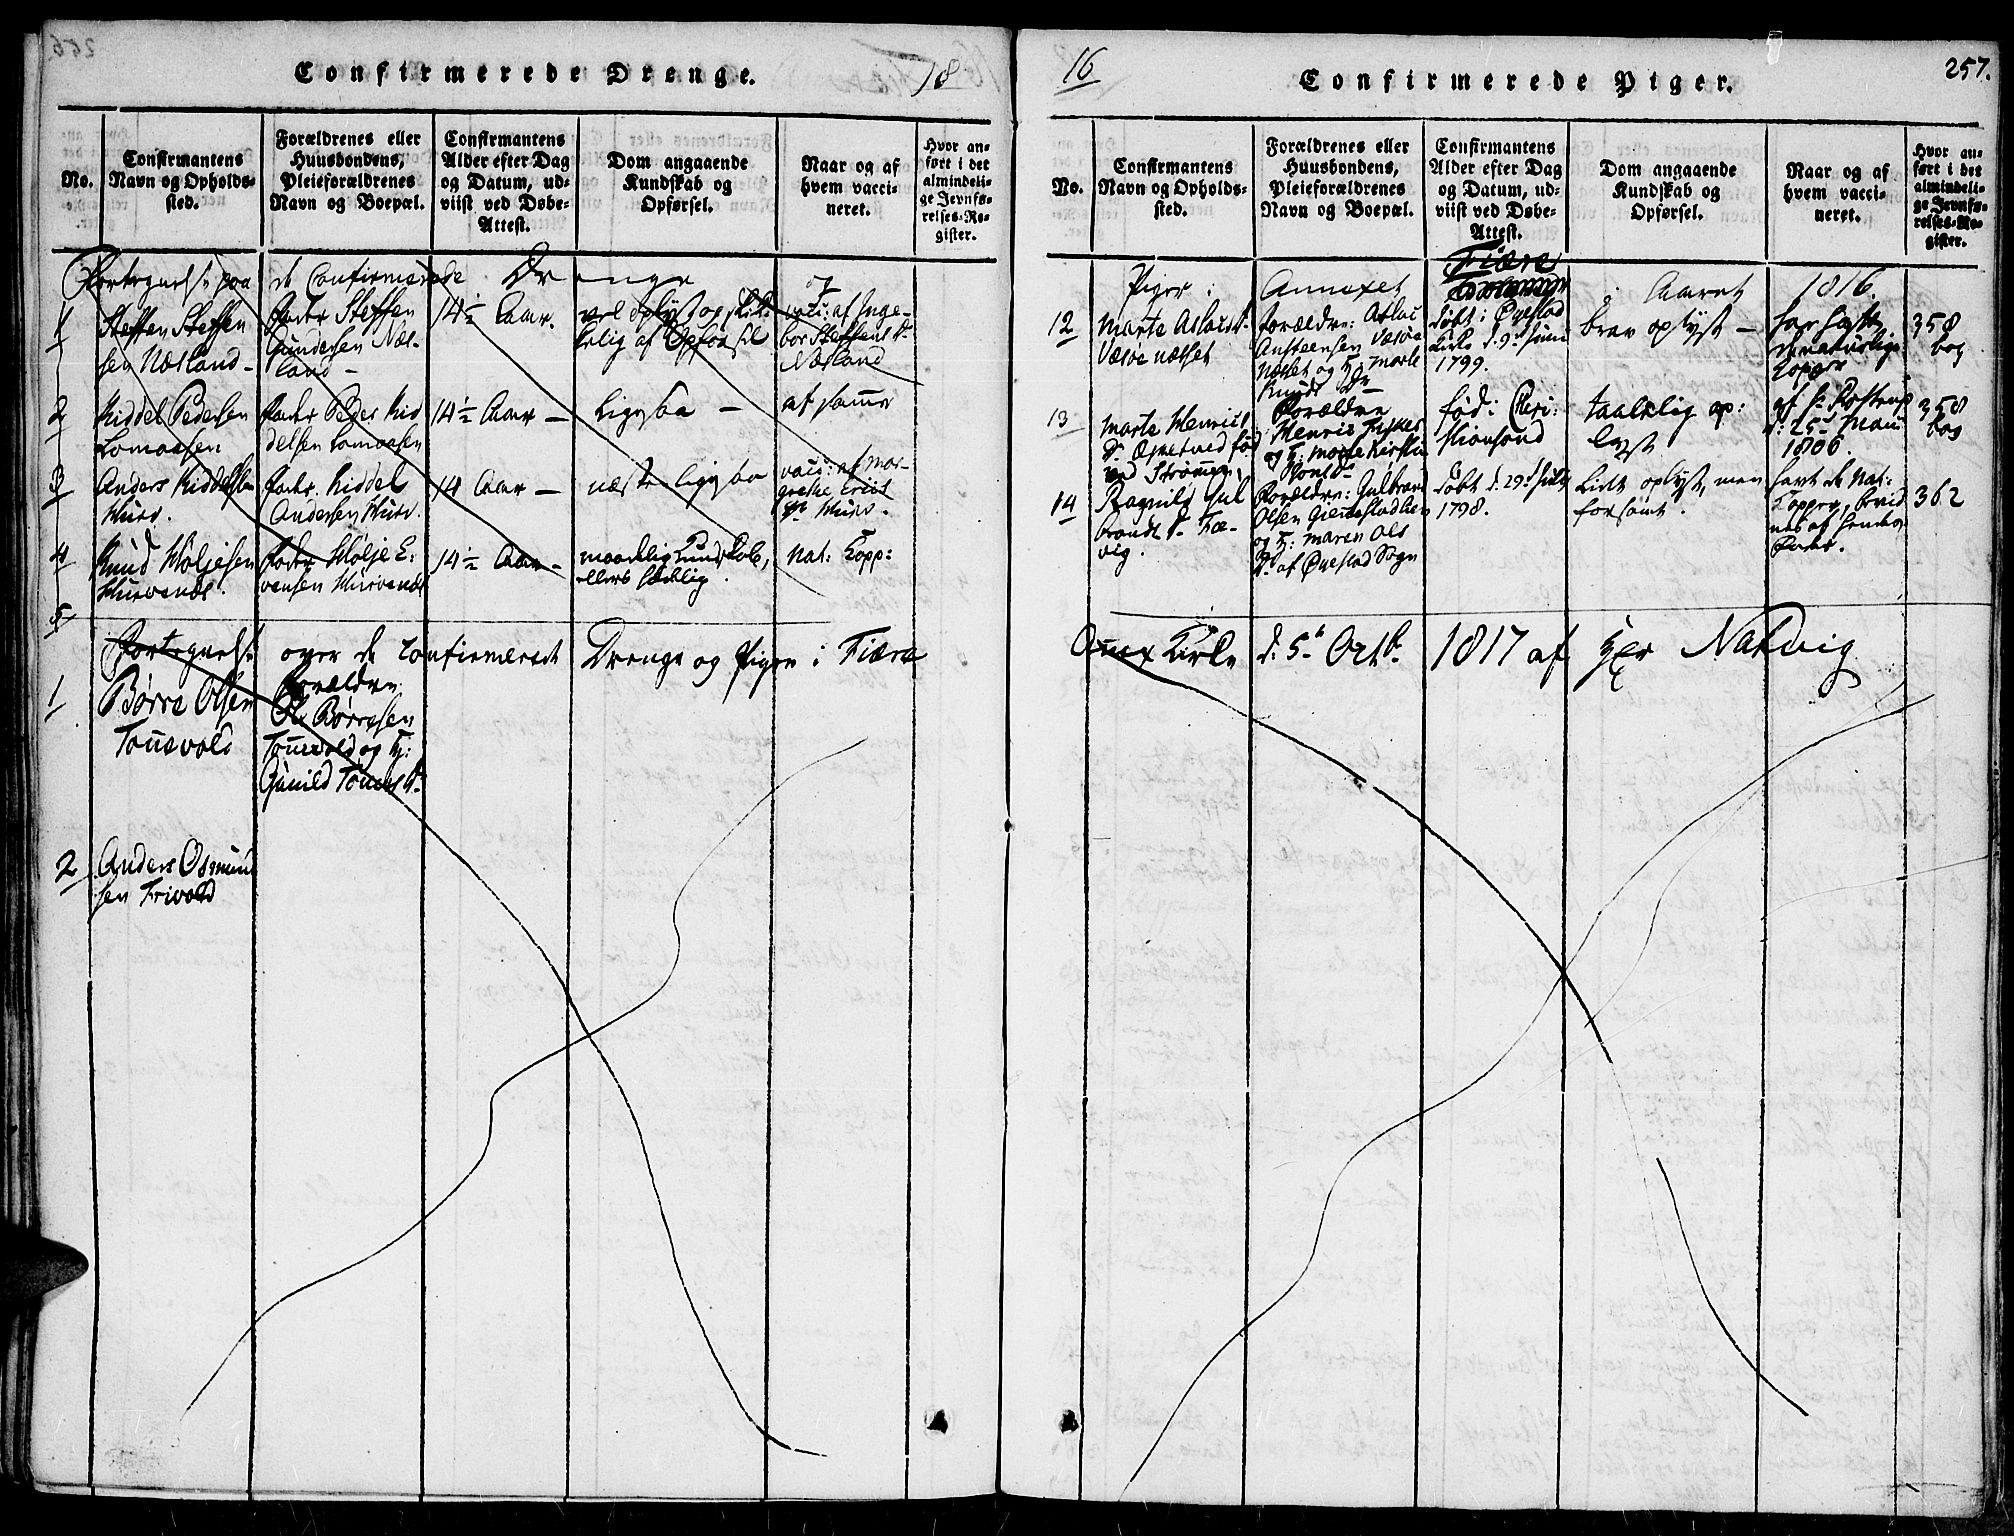 Confirmerede Drenge.
18
No.
Confirmantens
Navn og Opholds-
sted.
Forældrenes eller
Huusbondens,
Pleieforældrenes
Navn og Boepæl.
Confirmantens
Alder efter Dag
og Datum, ud-
viist ved Døbe-
Attest.
Dom angaaende
Kundskab og
Opførsel.
Naar og af
hvem vacci-
neret.
Hvor an-
ført i det
almindeli-
ge Jevnfø-
relses-Re-
gister.
Fortegnelse paa de Confirmerede Drenge
1
Steffen Steffen
sen Næsland -
Fader Steffen
Gundersen Næs-
land -
14½ Aar.
vel oplyst og skik-
kelig af Opførsel
vacc: af Inge-
bor Steffens D.
Næsland
2
Kiddel Pedersen
Lomaasen
Fader Peder Kid
delsen Lomaasen
14½ Aar -
Ligesaa -
af samme
3
Anders Kiddelsen
Hurv.
Fader. Kiddel
Andersen Hurv.
14 Aar -
næsten ligesaa
vacc: af Mar-
grethe
Hurv.
4
Knud Holjesen
Hurvenæs.
Fader Holje E-
vensen Hurvenæs
14½ Aar -
maadelig Kundskab,
ellers sædelig.
Nat: Kopp:
5
Fortegnelse over de Confirmerede Drenge og Piger i Fiære
1
Børre Olsen
Tonnevold
Forældre
Ole Børresen
Tonnevold og H:
Gunild Tones D.
2
Anders Osmund
sen Trivold
16
Confirmerede Piger.
257.
No.
Confirmantens
Navn og Opholds-
sted.
Forældrenes eller
Huusbondens,
Pleieforældrenes
Navn og Boepæl.
Confirmantens
Alder efter Dag
og Datum, ud-
viist ved Døbe-
Attest.
Dom angaaende
Kundskab og
Opførsel.
Naar og af
hvem vacci-
neret.
Hvor an-
ført i det
almindeli-
ge Jevnfø-
relses-Re-
gister.
Piger i Annexet Fiære i Aaret 1816.
12
Marte Aslaks D.
Væsøe næsset
Forældre: Aslac
Austeensen Væsøe
næsset og H. Marte
Knuds D.
døbt i Øyestad
Kirke d. 9d Junii
1799.
brav oplyst -
har havt
de naturlige
Kopper
358
bog
13
Marte Henrics
D. født
ved Strømmen,
Forældre
Henric
og H: Marte Kirstin
D.
fød i Chri:
stiansand
taalelig op:
lyst
af H: Rostrup
d. 25d
1806.
358
bog
14
Ragnild Gul
brands D. Fæ-
vig.
Forældre: Gulbrand
Olsen
og H: Maren Ols
D. af Øyestad Sogn
døbt d. 29d July
1798.
Lidt oplyst, men
forsømt.
havt de nat:
Kopper, bevid
net af hendes
Fader.
362
Annex Kirke d. 5te Octb. 1817 af Hr Natvig